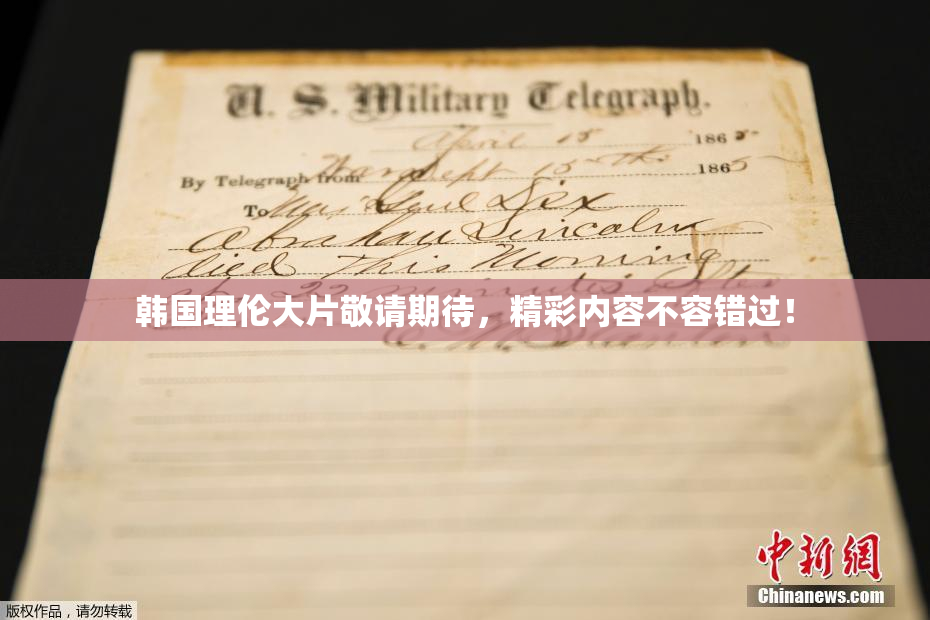 U. S. Military Telegraph.
April 15 1865
By Telegraph from War Dept 15th 1865
To Maj Genl Dix
Abraham Lincoln
died This Morning
at 22 minutes after
韩国理伦大片敬请期待，精彩内容不容错过！
E. M. Stanton
中新网
Chinanews.com
版权作品，请勿转载